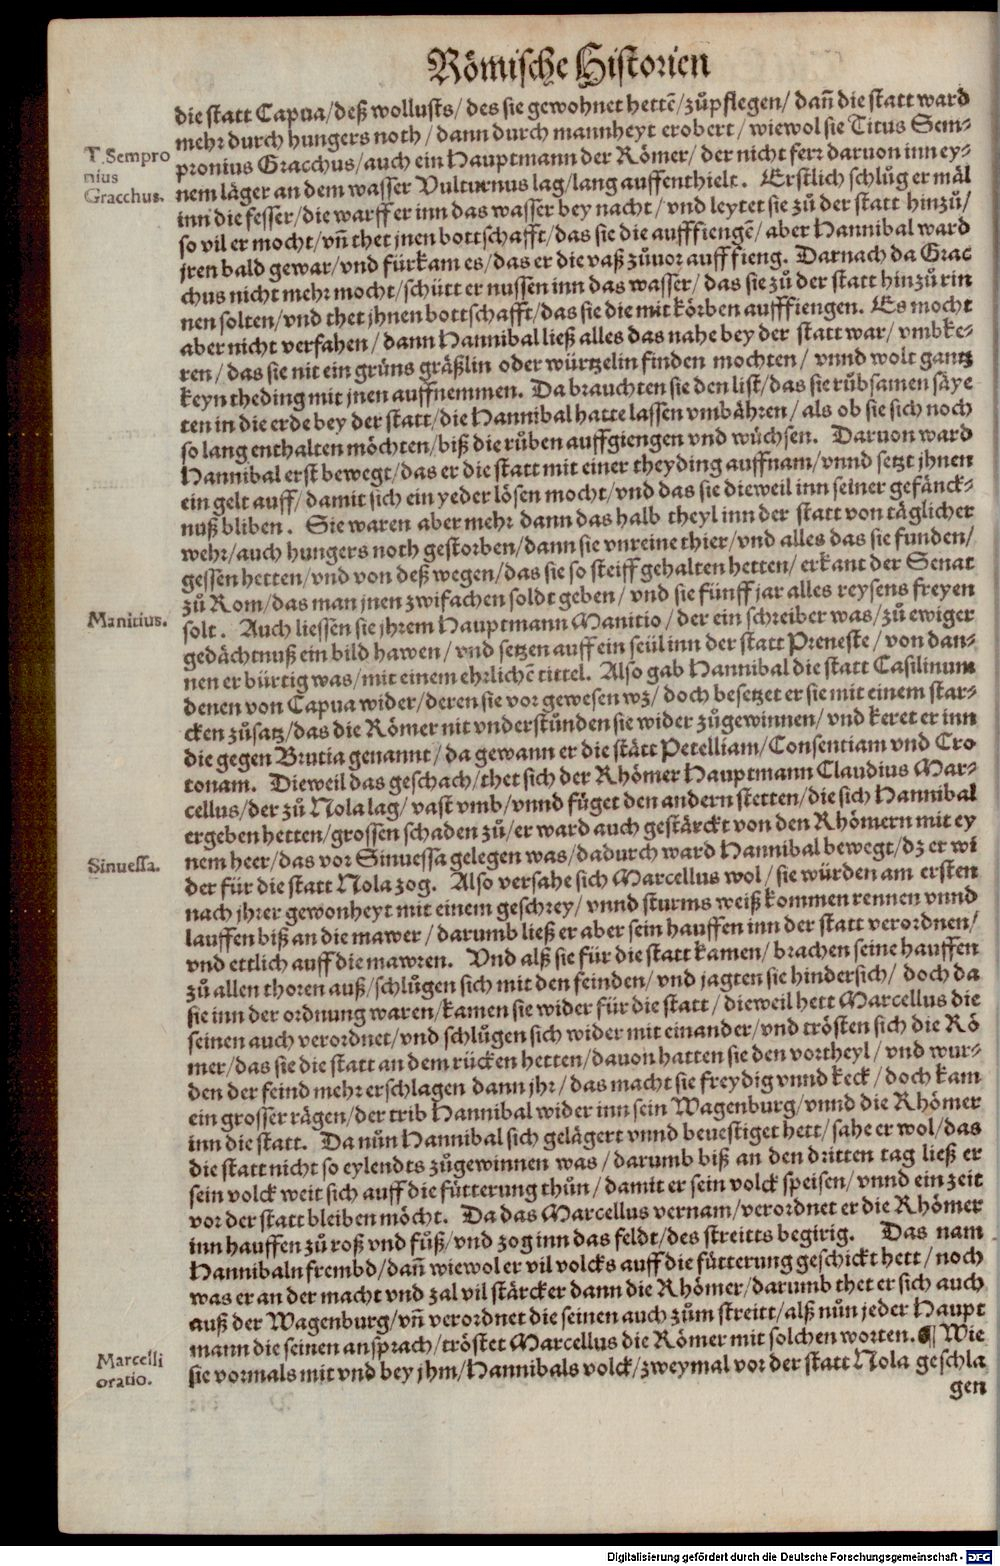 Römische Historien
die statt Capua/deß wollusts/des sie gewohnet hettẽ/zůpflegen/dañ die statt ward
mehr durch hungers noth/dann durch mannheyt erobert/wiewol sie Titus Sem-
T. Sempro
nius
Gracchus.
pronius Gracchus/auch ein Hauptmann der Römer/der nicht ferr daruon inn ey-
nem läger an dem wasser Vulturnus lag/lang auffenthielt. Erstlich schlůg er mäl
inn die fesser/die warff er inn das wasser bey nacht/vnd leytet sie zů der statt hinzů/
so vil er mocht/vñ thet jnen bottschafft/das sie die aufffiengẽ/aber Hannibal ward
jren bald gewar/vnd fürkam es/das er die vaß zůuor aufffieng. Darnach da Grac
chus nicht mehr mocht/schütt er nussen inn das wasser/das sie zů der statt hinzů rin
nen solten/vnd thet jhnen bottschafft/das sie die mit körben aufffiengen. Es mocht
aber nicht verfahen/dann Hannibal ließ alles das nahe bey der statt war/vmbke-
ren/das sie nit ein grüns gräßlin oder würtzelin finden mochten/vnnd wolt gantz
keyn theding mit jnen auffnemmen. Da brauchten sie den list/das sie růbsamen säye
ten in die erde bey der statt/die Hannibal hatte lassen vmbähren/als ob sie sich noch
so lang enthalten möchten/biß die rüben auffgiengen vnd wüchsen. Daruon ward
Hannibal erst bewegt/das er die statt mit einer theyding auffnam/vnnd setzt jhnen
ein gelt auff/damit sich ein yeder lösen mocht/vnd das sie dieweil inn seiner gefänck-
nuß bliben. Sie waren aber mehr dann das halb theyl inn der statt von täglicher
wehr/auch hungers noth gestorben/dann sie vnreine thier/vnd alles das sie funden/
gessen hetten/vnd von deß wegen/das sie so steiff gehalten hetten/erkant der Senat
zů Rom/das man jnen zwifachen soldt geben/vnd sie fünff jar alles reysens freyen
Manitius.
solt. Auch liessen sie jhrem Hauptmann Manitio/der ein schreiber was/zů ewiger
gedächtnuß ein bild hawen/vnd setzen auff ein seül inn der statt Preneste/von dan-
nen er bürtig was/mit einem ehrlichẽ tittel. Also gab Hannibal die statt Casilinum
denen von Capua wider/deren sie vor gewesen wz/doch besetzet er sie mit einem star-
cken zůsatz/das die Römer nit vnderstůnden sie wider zůgewinnen/vnd keret er inn
die gegen Brutia genannt/da gewann er die stätt Petelliam/Consentiam vnd Cro
tonam. Dieweil das geschach/thet sich der Rhömer Hauptmann Claudius Mar-
cellus/der zů Nola lag/vast vmb/vnnd füget den andern stetten/die sich Hannibal
ergeben hetten/grossen schaden zů/er ward auch gestärckt von den Rhömern mit ey
Sinuessa.
nem heer/das vor Sinuessa gelegen was/dadurch ward Hannibal bewegt/dz er wi
der für die statt Nola zog. Also versahe sich Marcellus wol/sie würden am ersten
nach jhrer gewonheyt mit einem geschrey/vnnd sturms weiß kommen rennen vnnd
lauffen biß an die mawer/darumb ließ er aber sein hauffen inn der statt verordnen/
vnd ettlich auff die mawren. Vnd alß sie für die statt kamen/brachen seine hauffen
zů allen thoren auß/schlůgen sich mit den feinden/vnd jagten sie hindersich/doch da
sie inn der ordnung waren/kamen sie wider für die statt/dieweil hett Marcellus die
seinen auch verordnet/vnd schlůgen sich wider mit einander/vnd trösten sich die Rö
mer/das sie die statt an dem rücken hetten/dauon hatten sie den vortheyl/vnd wur-
den der feind mehr erschlagen dann jhr/das macht sie freydig vnnd keck/doch kam
ein grosser rägen/der trib Hannibal wider inn sein Wagenburg/vnnd die Rhömer
inn die statt. Da nůn Hannibal sich gelägert vnnd beuestiget hett/sahe er wol/das
die statt nicht so eylendts zůgewinnen was/darumb biß an den dritten tag ließ er
sein volck weit sich auff die fütterung thůn/damit er sein volck speisen/vnnd ein zeit
vor der statt bleiben möcht. Da das Marcellus vernam/verordnet er die Rhömer
inn hauffen zů roß vnd fůß/vnd zog inn das feldt/des streitts begirig. Das nam
Hannibaln frembd/dañ wiewol er vil volcks auff die fütterung geschickt hett/noch
was er an der macht vnd zal vil stärcker dann die Rhömer/darumb thet er sich auch
auß der Wagenburg/vñ verordnet die seinen auch zům streitt/alß nůn jeder Haupt
Marcelli
oratio.
mann die seinen ansprach/tröstet Marcellus die Römer mit solchen worten. ¶ Wie
sie vormals mit vnd bey jhm/Hannibals volck/zweymal vor der statt Nola geschla
gen
Digitalisierung gefördert durch die Deutsche Forschungsgemeinschaft - DFG